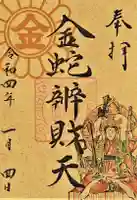 奉拝
金蛇辨財天
金
令和四年
一月四日